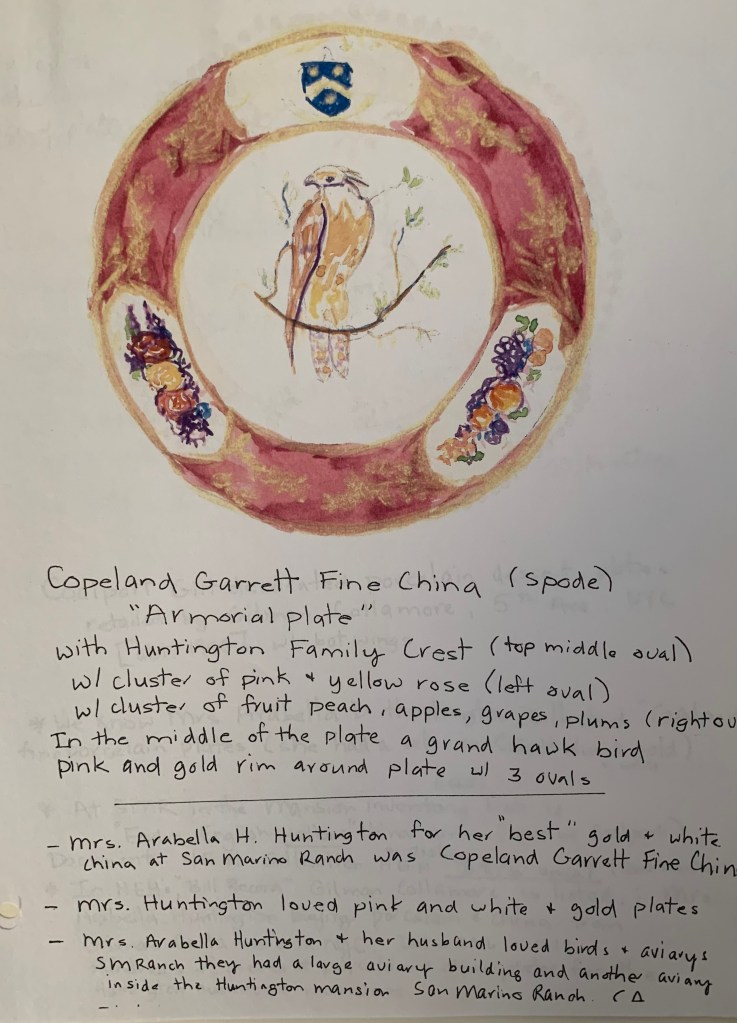 Copeland Garrett Fine China (Spode)
"Armorial plate"
with Huntington Family Crest (top middle oval)
w/ cluster of pink + yellow rose (left oval)
w/ cluster of fruit peach, apples, grapes, plums (right ov
In the middle of the plate a grand hawk bird
pink and gold rim around plate w/ 3 ovals
- Mrs. Arabella H. Huntington for her "best" gold + white
china at San Marino Ranch was Copeland Garrett Fine Chin
- Mrs. Huntington loved pink and white + gold plates
- Mrs. Arabella Huntington + her husband loved birds + aviarys
SM Ranch they had a large aviary building and another aviary
inside the Huntington mansion San Marino Ranch. CA